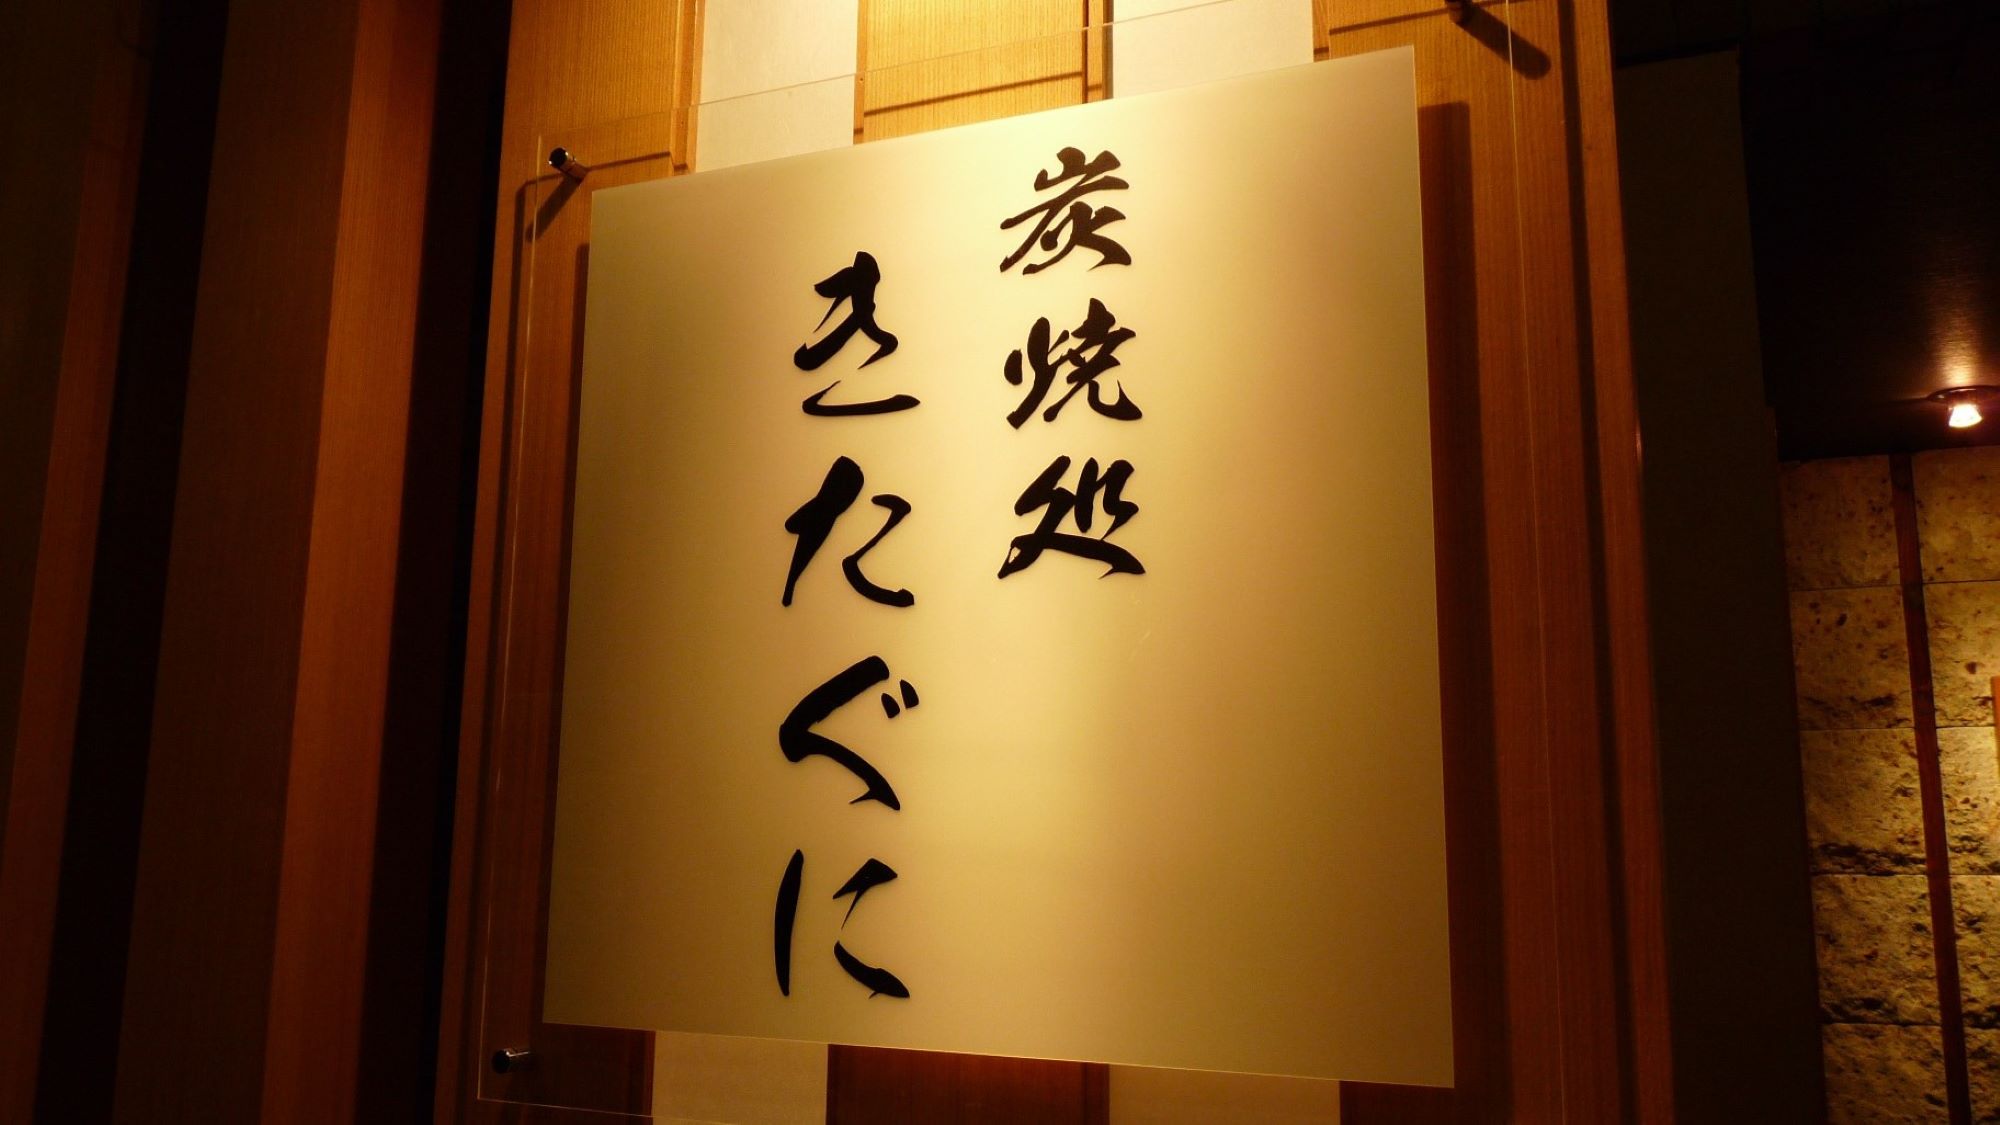 炭焼処
きたぐに